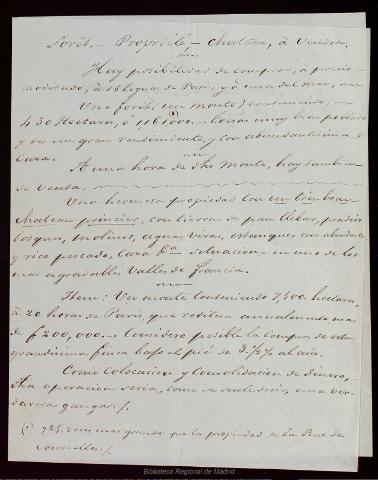 Forêt. – Propriété – Chateau, à Vendre.
Hay posibilidad de comprar, à precio
moderado, à 15 leguas de Paris, y à una del Mar, ...
Una forêt (un monte) conteniendo,
430 Hectares, ó (1)... muy bien poblado
y de un gran rendimiento, y con abundantisima
Caza.
A una hora de dho Monte, hay tambien
de Venta,
Una hermosa propiedad con un très beau
chateau princier, con tierras de pan llebar, prados
bosques, molinos, aguas vivas, estanques con abundante
y rico pescado, Caza &a situacion en uno de los
mas agradables Valles de Francia.
Item: Un monte conteniendo 7,500 hectares,
à 20 horas de Paris, que reditua anualmente mas
de f 200,000... Considero posible la compra de esta
grandisima finca bajo el pié de 3 1/2 % al año.
Como Colocacion y Consolidacion de dinero,
dha operacion seria, como se suele decir, una ver-
dadera ganga /.
(1) 725 veces mas grande que la propiedad de la Rue de
Courcelles /.
Biblioteca Regional de Madrid